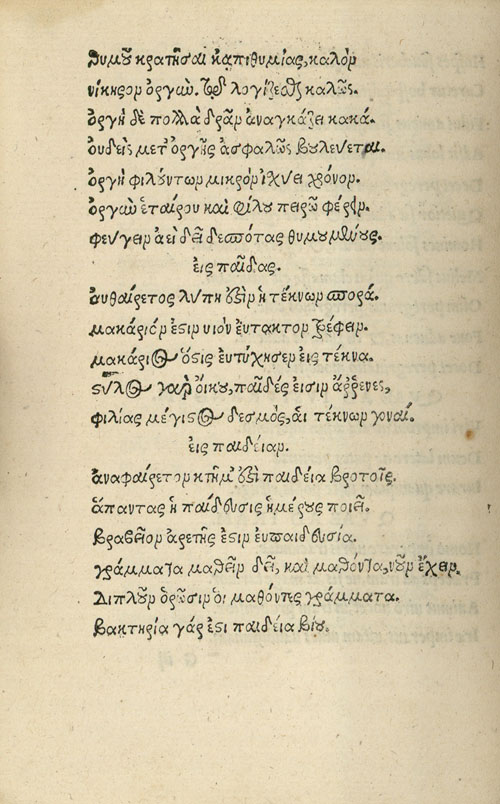 Θυμοῦ κρατῆσαι κἀπιθυμίας, καλόν
νίκησον ὀργὼ τῷ λογίζεσθαι καλῶς.
ὀργὴ δὲ πολλὰ δρᾶν ἀναγκάζει κακά.
ουδεὶς μετ' ὀργῆς ἀσφαλῶς βουλεύεται.
ὀργὴ φιλούντων μικρὸν ἰχύει χρόνον.
ὀργὼ ἑταίρου καὶ φίλου πειρῶ φέρειν.
φευγειν αεὶ δεῖ δεσπότας θυμουμένους.
εις παῖδας.
αυθαίρετος λυπη ὅζιν ἡ τέκνων σπορά.
μακάριόν ἐστιν υιὸν ἔυτακτον τρέφειν.
μακάριος ὅστις ἐυτύχησεν εις τέκνα.
στύλος γαρ οἴκου, παῖδές εισιν ἄρρενες,
φιλίας μέγιστος δεσμὸς, ἁι τέκνων γοναί.
εις παιδείαν.
αναφαίρετον κτῆμ' ὅζι παιδεία βροτοῖς.
ἅπαντας ἡ παίδευσις ἡμέρους ποιεῖ.
βραβεῖον ἀρετῆς ἐστιν ευπαιδευσία.
γράμματα μαθεῖν δεῖ, καὶ μαθόντα, νοῦν ἔχειν.
Διπλοῦν ὁρῶσιν ὁι μαθόντες γράμματα.
βακτηρία γάρ ἐστι παιδεία βίου.